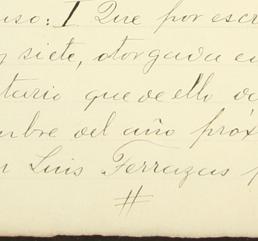 uso: I Que por escr
y siete, otorgada en
tario que de ello de
mbre del año próx
n Luis Terrazas p
#